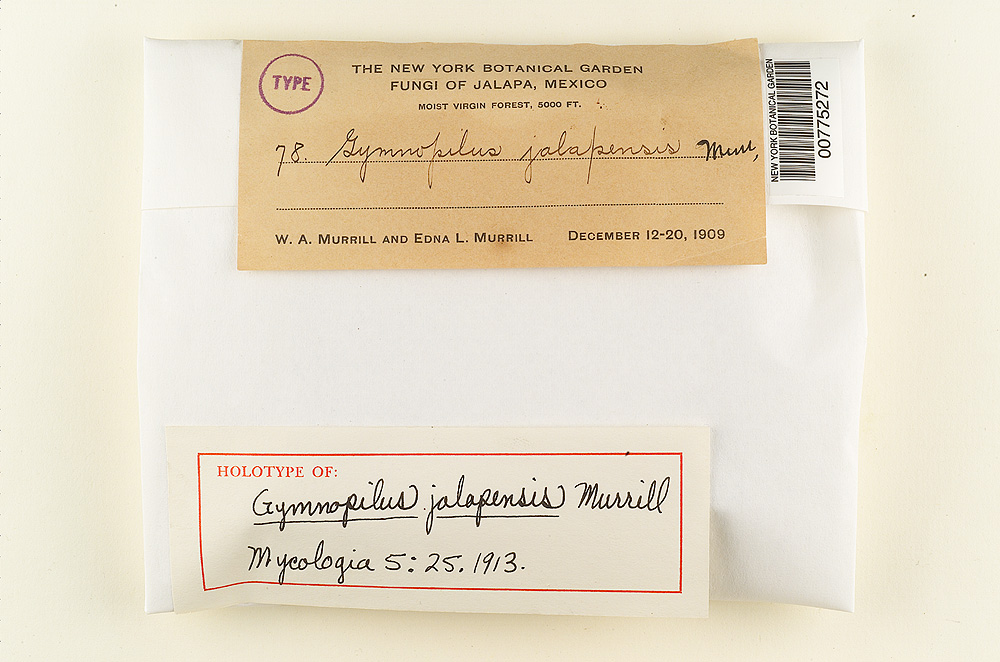 TYPE
THE NEW YORK BOTANICAL GARDEN
FUNGI OF JALAPA, MEXICO
MOIST VIRGIN FOREST, 5000 FT.
78. Gymnopilus jalapensis Murr,
W. A. MURRILL AND EDNA L. MURRILL DECEMBER 12-20, 1909
NEW YORK BOTANICAL GARDEN
00775272
HOLOTYPE OF:
Gymnopilus jalapensis Murrill
Mycologia 5: 25. 1913.